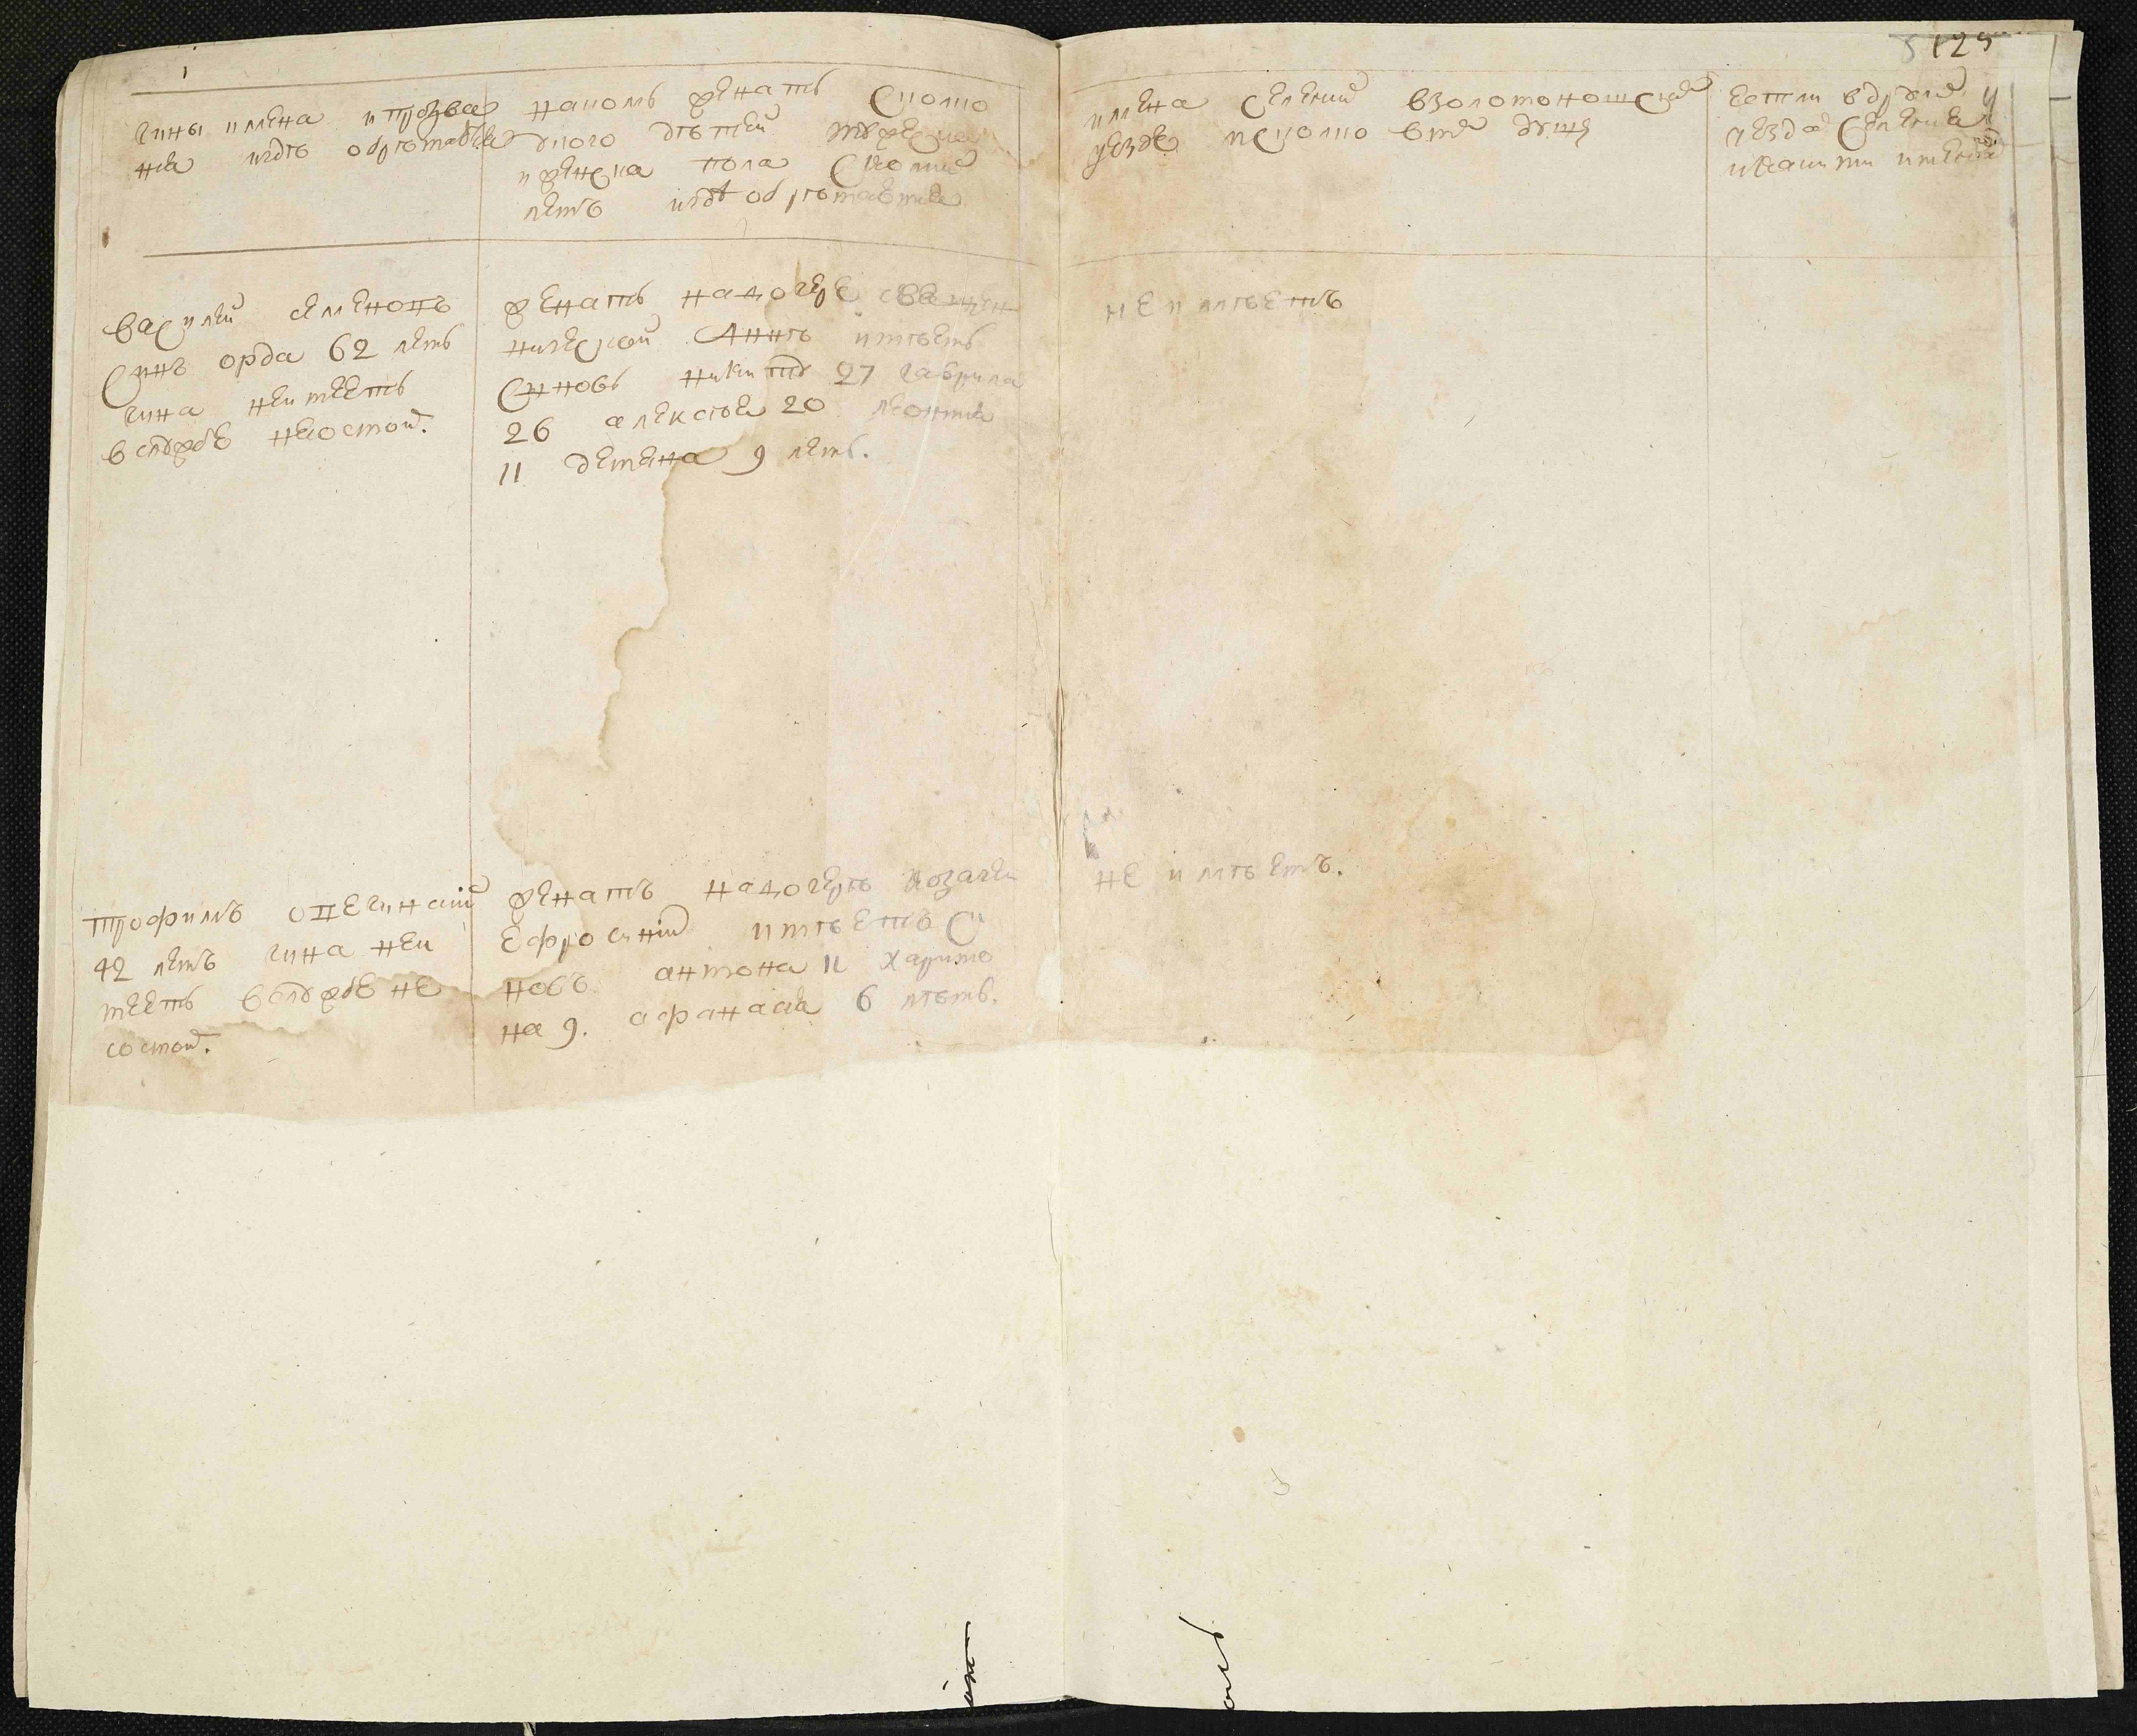 125
чины имена и прозва
ниа и гдѣ обрѣтаются
на комъ женатъ сколко
у кого дѣтей мужеска
и женска пола сколко
летъ и гдѣ обрѣтаются
имена селений в золотоношском
уезде и сколко в них душъ
естли в других у
уездах селениа
и какими имены
василий семеновъ
синъ орда 62 летъ
чина не имеетъ
в службе не состоит.
женатъ на дочере священ
нической аннѣ имѣетъ
синовъ никиту 27 гаврила
26 алексѣя 20 леонтия
11 демяна 9 летъ.
не имѣетъ
трофимъ опечинский
42 летъ чина не и
меетъ в службе не
состоит.
женатъ на дочерѣ козачей
ефросинии имѣетъ си
новъ антона 11 харито
на 9. афанасия 6 лѣтъ.
не имѣетъ.